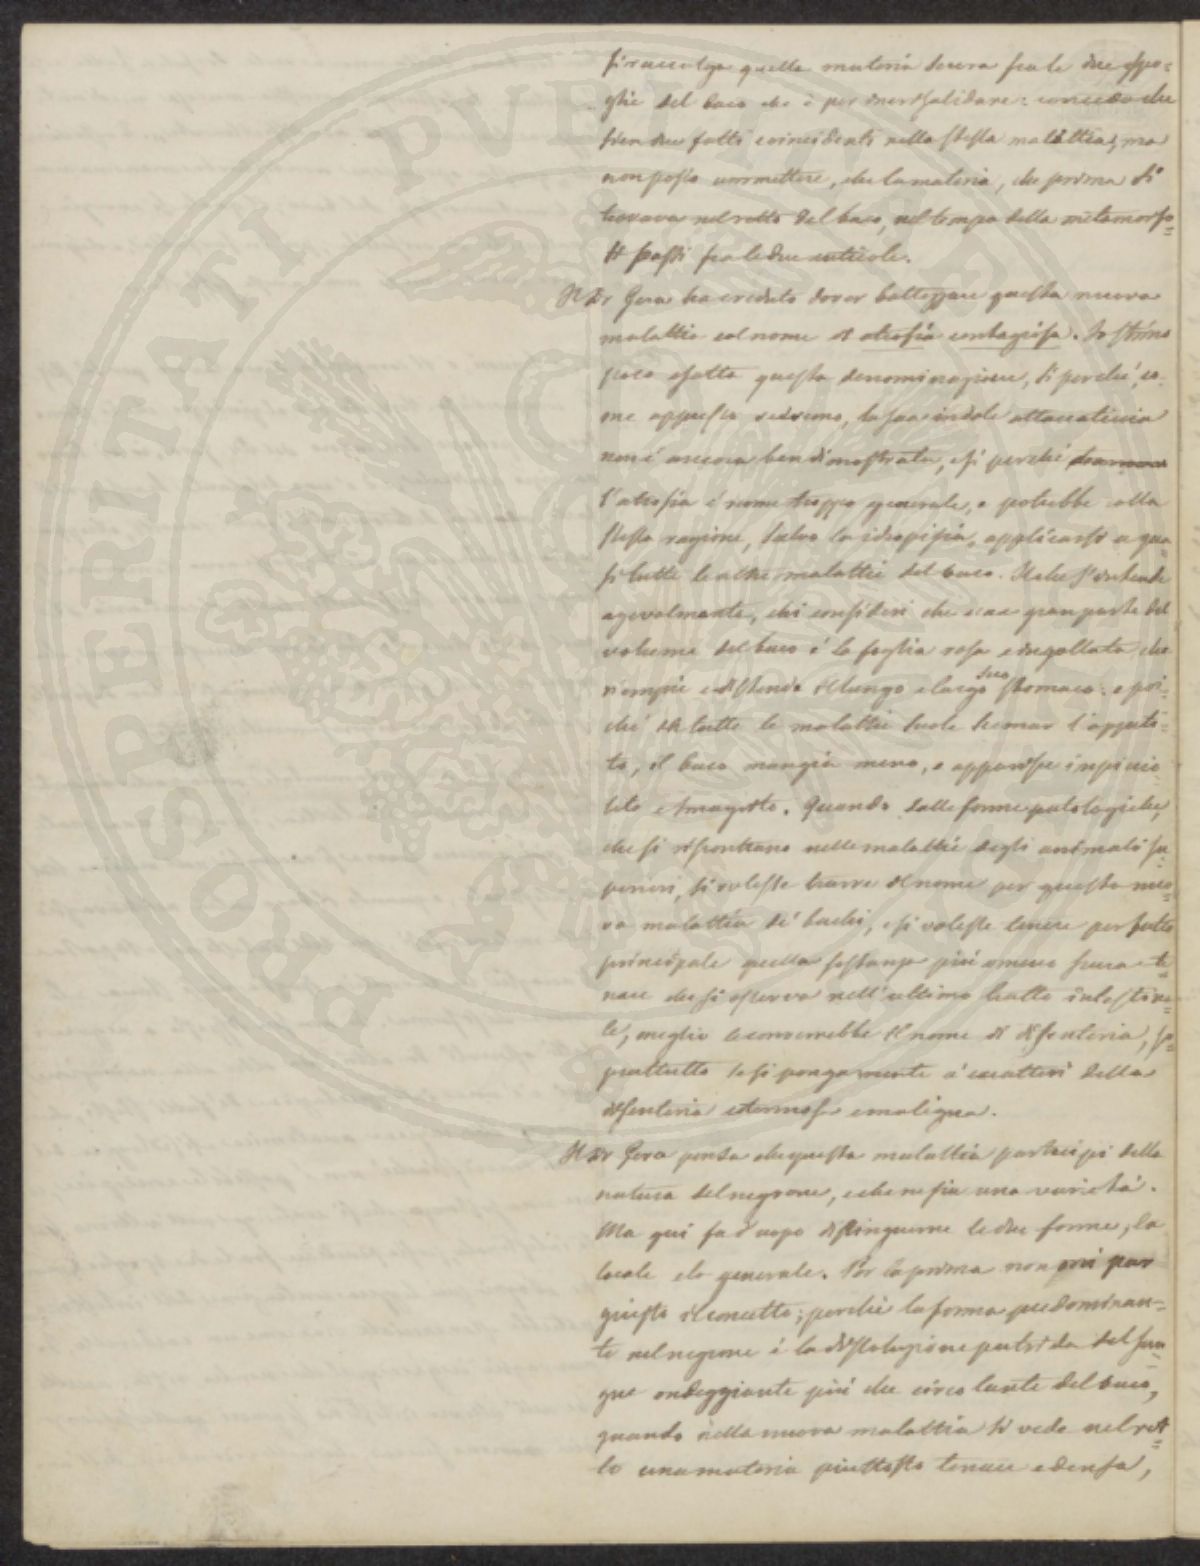 si raccolga quella materia scura fra le due spo=
glie del baco che è per incrisalidare: concedo che
sien due fatti coincidenti nella stessa malattia; ma
non posso ammettere, che la materia, che prima si
trovava nel retto del baco, nel tempo della metamorfo=
si passi fra le due cuticole.
Il Dr Gera ha creduto dover battezzare questa nuova
malattia col nome di atrofia contagiosa. Io stimo
poco esatta questa denominazione, sì perché, co
me appresso vedremo, la sua indole attaccaticcia
non è ancora ben dimostrata, e sì perché
l'atrofia è nome troppo generale, e potrebbe alla
stessa ragione, salvo la idropisia, applicarsi a qua=
si tutte le altre malattie del baco. Il che s'intende
agevolmente, chi consideri che una gran parte del
volume del baco è la foglia rosa e ingollata che
riempie e distende il lungo e largo suo stomaco: e poi=
ché in tutte le malattie suole scemar l'appeti=
to, il baco mangia meno, e apparisce inpiccio
lito e smagrito. Quando dalle forme patologiche,
che si riscontrano nelle malattie degli animali su
periori, si volesse trarre il nome per questa nuo=
va malattia de' bachi, e si volesse tenere per fatto
principale quella sostanza più o meno scura e te
nace che si osserva nell'ultimo tratto intestina=
le, meglio le converrebbe il nome di disenteria, so=
prattutto se si ponga mente a' caratteri della
disenteria e maligna.
Il Dr Gera pensa che questa malattia partecipi della
natura del negrone, e che ne sia una varietà.
Ma qui fa d'uopo distinguerne le due forme, la
locale e la generale. Per la prima non mi par
giusto il concetto; perché la forma predominan=
te nel negrone è la dissoluzione putrida del san=
gue ondeggiante più che circolante del baco,
quando nella nuova malattia si vede nel ret=
to una materia piuttosto tenace e densa,
PROSPERITATI PVBLICAE